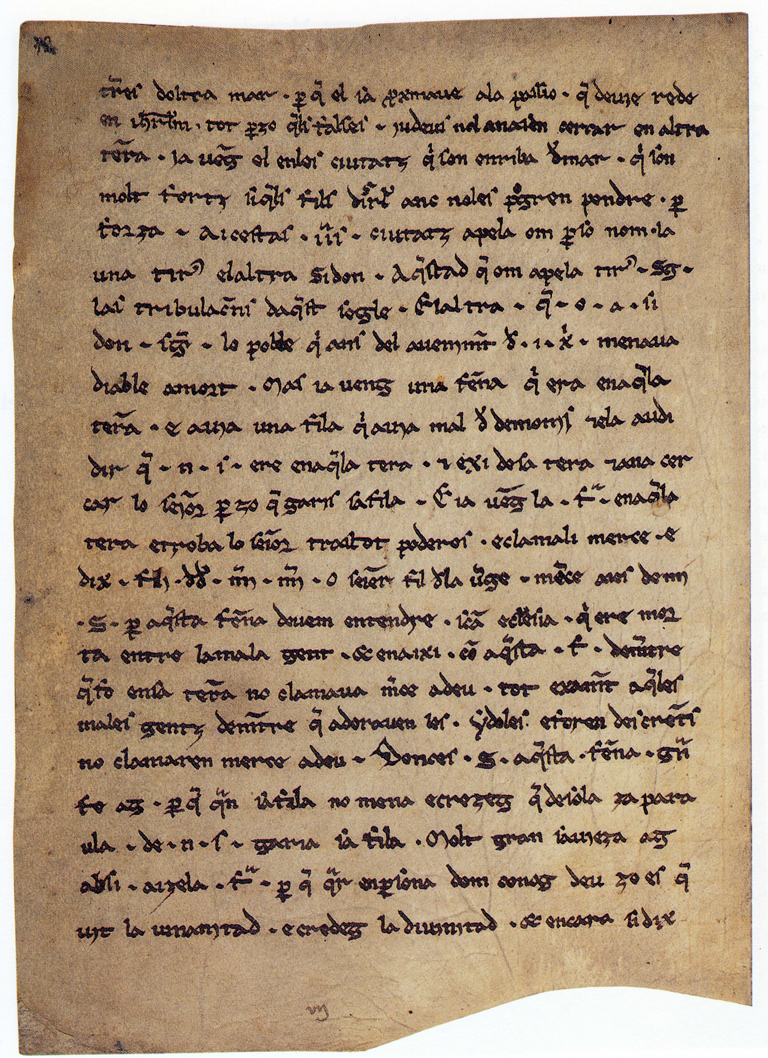 tr̄es doltra mar · ꝑ q̄ el ia ꝓxmaue ala passio · q̄ deuie rede
en ih̄rlm̄ · tot ꝑzo q̄ls falses · iudeus nol anassen cercar en altra
terra · Ia uēg el enles ciutatz q̄ son enriba d̄mar · q̄ son
molt fortz siq̄ls fils disrl̄ anc noles pogren pendre · ꝑ
forza · Aicestas · ii̅s · ciutatz apela om ꝑ so nom · la
una tir9 elaltra Sidon · Aq̄stad q̄ om apela tir9 · Sg ·
las tribulac̄ns daq̄st segle · E laltra · q̄ · o · a · si
don · sḡ · lo poble q̄ ans del auenim̄t d̄ · i · x̄ · menaua
diable amort · Mas ia ueng una fēna q̄ era enaq̄la
tera · e auia una fila q̄ auia mal d̄ demonis ⁊ela audi
dir q̄ · n · s · ere enaq̄la tera · ⁊ exi desa tera ⁊ana cer
car lo seiōr ꝑ zo q̄ garis sa fila · E ia uēg la · f ͣ · enaq̄la
tera etroba lo seiōr trastot poderos · eclamali merce · e
dix · fili · dd̄ · m̄ · m̄ · O seiēr fil d̄la uḡe · mēce aies demi
· S · ꝑ aq̄sta fēna deuem entendre · sc̄a eclesia · q̄ ere mor
ta entre lamala gent · & enaixi · cō aq̄sta · f · dem̄tre
q̄ fo ensa terra no clamaua m̄ce adeu · tot exam̄t aq̄les
males gentz dem̄tre q̄ adorauen les · ydoles eforen descrēts
no clamaren merce adeu · Donces · S · aq̄sta · fēna · grn̄
fe ag · ꝑ q̄ q̄n sa fila no mena ecrezeg q̄ de sola za para
ula · de · n · s · garia sa fila · Molt gran sauieza ag
absi · aizela · f ͣ · ꝑ q̄ q̄r enꝑsona dom conog deu zo es q̄
uit la umanitad · e credeg la diuinitad · & encara si dix